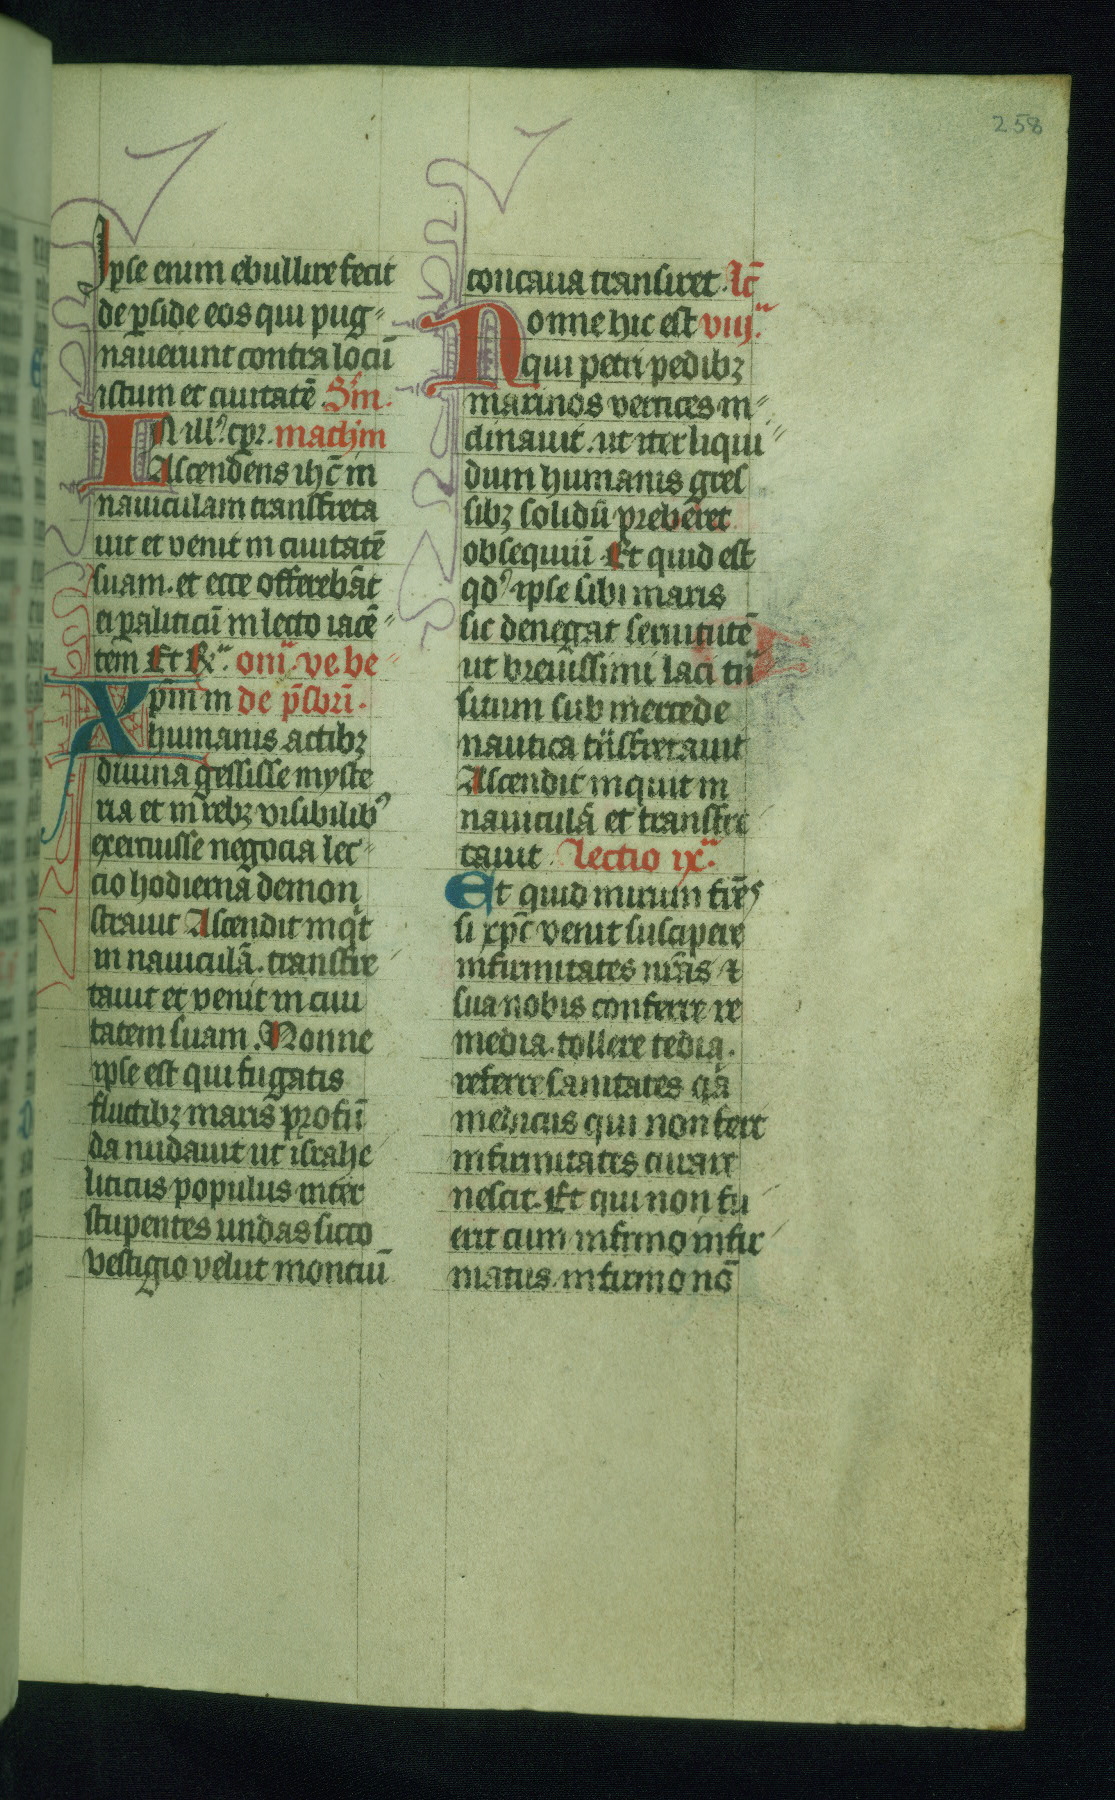 258
Ipse enim ebullire fecit
de p̲side eos qui pug=
nauerunt contra locū
istum et ciuitatē Sm̄.
IN ill' tp̄r. mathm
Ascendens ihc̄ in
nauiculam transfreta
uit et venit in ciuitatē
suam. et ecce offerebāt
ei p̲aliticū in lecto iacē=
tem Et R̄a. om̄. ve be=
Xp̄m in de p̄sbri.
humanis actibꝫ
diuina gessisse myste
ria et in rebꝫ visibilibꝰ
exercuisse negocia lec=
cio hodierna demon
strauit Ascendit inqͥt
in nauiculā. transfre
tauit et venit in ciui
tatem suam. Nonne
ipse est qui fugatis
fluctibꝫ maris profū
da nudauit ut israhe
liticus populus inter
stupentes undas sicco
vestigio velut montiū
concaua transiret. lc̄
Nonne hic est viija.
qui petri pedibꝫ
marinos vertices in=
clinauit. ut iter liqui=
dum humanis gres
sibꝫ solidū preberet
obsequiū Et quid est
qd' ipse sibi maris
sic denegat seruitutē
ut breuissimi laci tn̄
situm sub mercede
nautica tn̄sfretauit
Ascendit inquit in
nauiculā et transfre
tauit. lectio ixa.
Et quid mirum fr̄es
si xp̄c venit suscipere
infirmitates nr̄as ⁊
sua nobis conferre re
media. tollere tedia.
referre sanitates qͣa
medicus qui non fert
infirmitates curare
nescit. Et qui non fu
erit cum infirmo infir
matus. infirmo nō